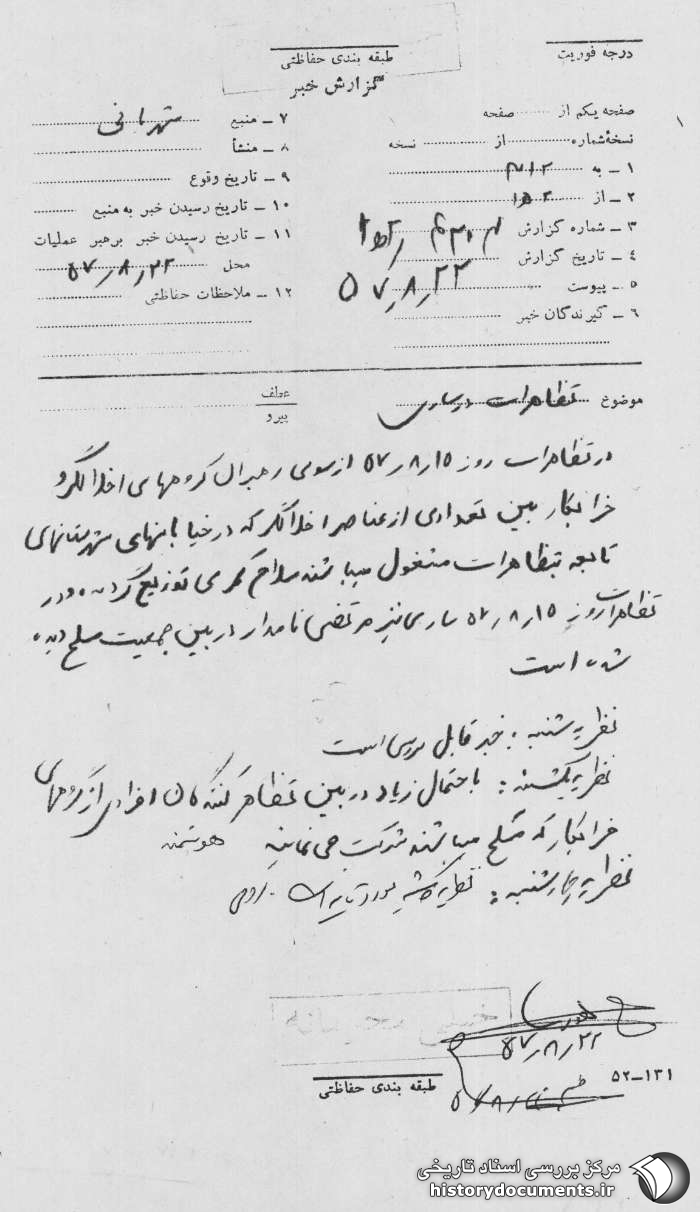 درجه فوریت
طبقه بندی حفاظتی
گزارش خبر
صفحه یکم از صفحه
نسخهٔ شماره از نسخه
۱ ــ به ۳۱۲
۲ ــ از
۳ ــ شماره گزارش
۴ ــ تاریخ گزارش ۵۷٫۸٫۲۲
۵ ــ پیوست
۶ ــ گیرندگان خبر
۷ ــ منبع شهربانی
۸ ــ منشأ
۹ ــ تاریخ وقوع
۱۰ ــ تاریخ رسیدن خبر به منبع
۱۱ ــ تاریخ رسیدن خبر برهبر عملیات
محل ۵۷٫۸٫۲۲
۱۲ ــ ملاحظات حفاظتی
موضوع تظاهرات در ساری
عطف
پیرو
در تظاهرات روز ۱۵٫۸٫۵۷ از سوی رهبران گروههای اخلالگر و
خرابکار بین تعدادی از عناصر اخلالگر که در خیابانهای شهرستانهای
تابعه بتظاهرات مشغول میباشند سلاح کمری توزیع گردیده و در
تظاهرات روز ۱۵٫۸٫۵۷ ساری نیز مرتضی نامدار در بین جمعیت مسلح دیده
شده است
نظریه شنبه : خبر قابل بررسی است
نظریه یکشنبه : باحتمال زیاد در بین تظاهر کنندگان افرادی از گروههای
خرابکار که مسلح میباشند شرکت می نمایند هوشمند
نظریه چهارشنبه : نظریه یکشنبه مورد تایید است.
۵۷٫۸٫۲۲
طبقه بندی حفاظتی
۵۲ــ۱۳۱
مرکز بررسی اسناد تاریخی
historydocuments.ir